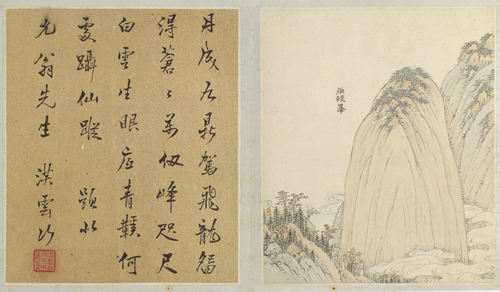 丹成九鼎駕飛龍留
得蒼〻萬仞峰咫尺
白雲生眼底青鞵何
處躡仙蹤 題似
先生 洪雲行
峯